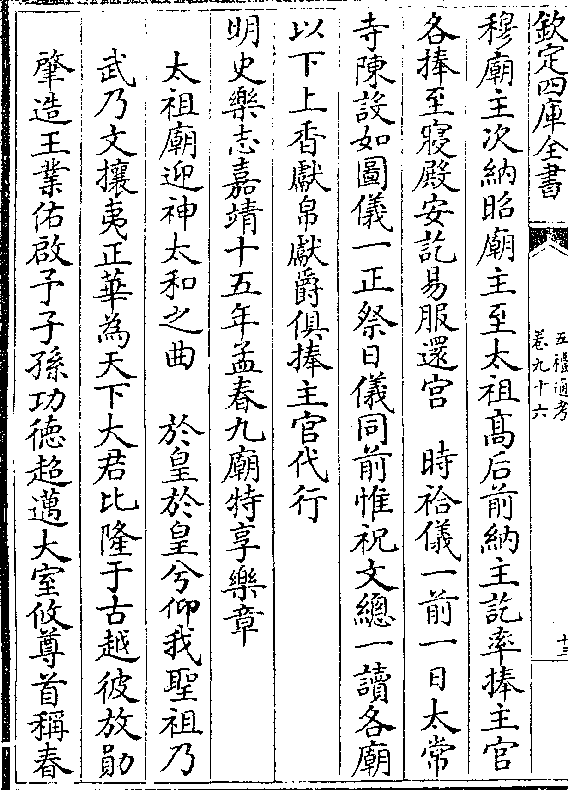 欽定四庫全書
五禮通考
卷九十六
十三
穆廟主次納昭廟主至太祖髙后前納主訖率捧主官
各捧至寢殿安訖易服還宫　時祫儀一前一日太常
寺陳設如圖儀一正祭日儀同前惟祝文總一讀各廟
以下上香獻帛獻爵俱捧主官代行
明史樂志嘉靖十五年孟春九廟特享樂章
太祖廟迎神太和之曲　於皇於皇兮仰我聖祖乃
武乃文攘夷正華為天下大君比隆于古越彼放勛
肇造王業佑啟予子孫功徳超邁大室攸尊首稱春